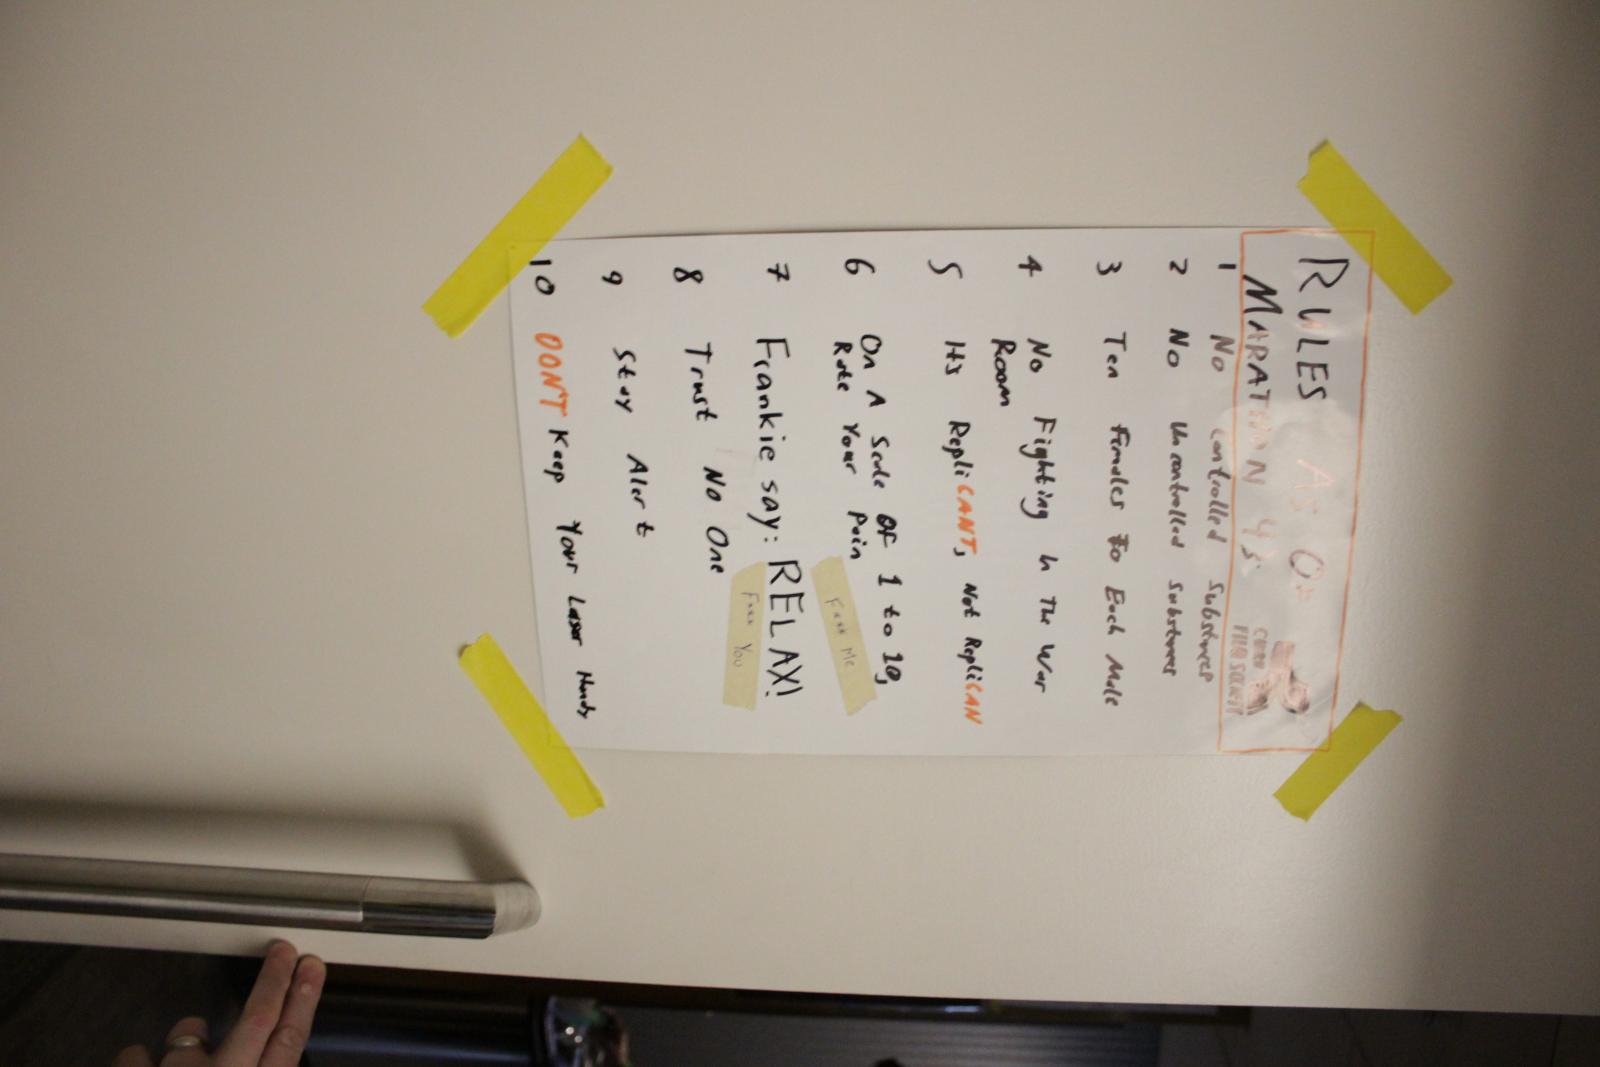 RULES AS OF
MARATHON 43
1 No Controlled Substances
2 No Uncontrolled Substances
3 Ten Females To Each Male
4 No Fighting In The War
Room
5 It's RepliCANT, Not RepliCAN
6 On A Scale Of 1 to 10,
Rate Your Pain
7 Frankie say: RELAX!
8 Trust No One
You
9 Stay Alert
10 DON'T Keep Your Laser Handy